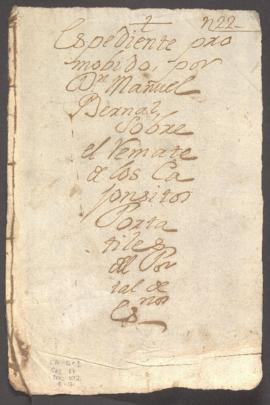 n 22
Espediente pro
mobido, por
Dn Mañuel
Bernal
Sobre
el Remate
de los Ca
jonsitos
Porta
tiles
del Por
tal de